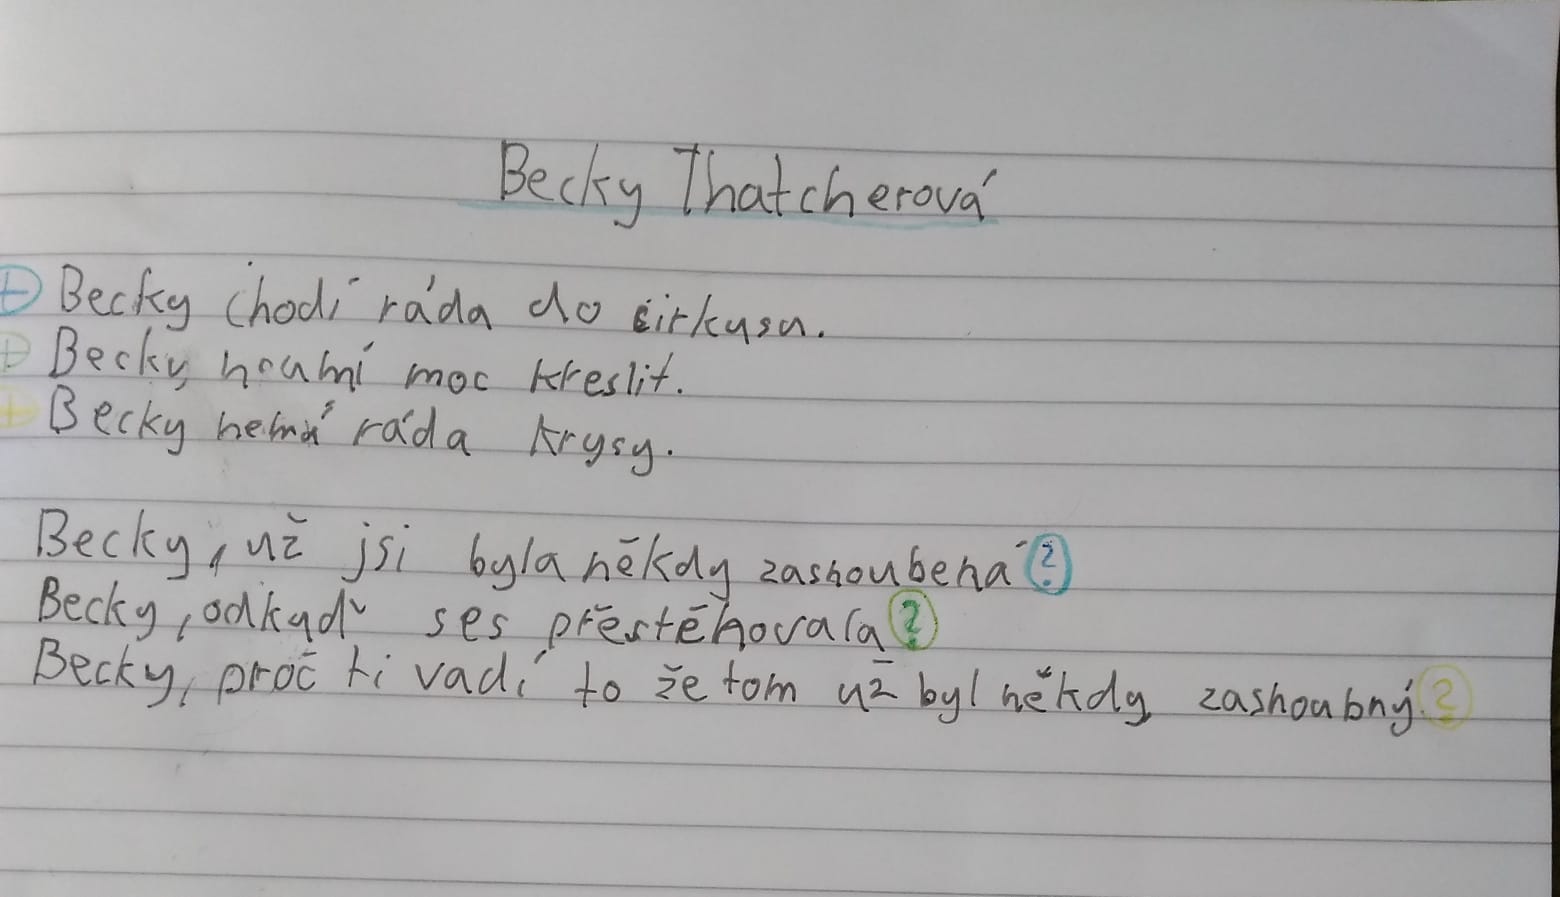 Becky Thatcherová
+ Becky chodí ráda do cirkusu.
+ Becky neumí moc kreslit.
+ Becky nemá ráda krysy.
Becky, už jsi byla někdy zasnoubena?
Becky, odkud ses přestěhovala?
Becky, proč ti vadí to že tom už byl někdy zasnoubný?